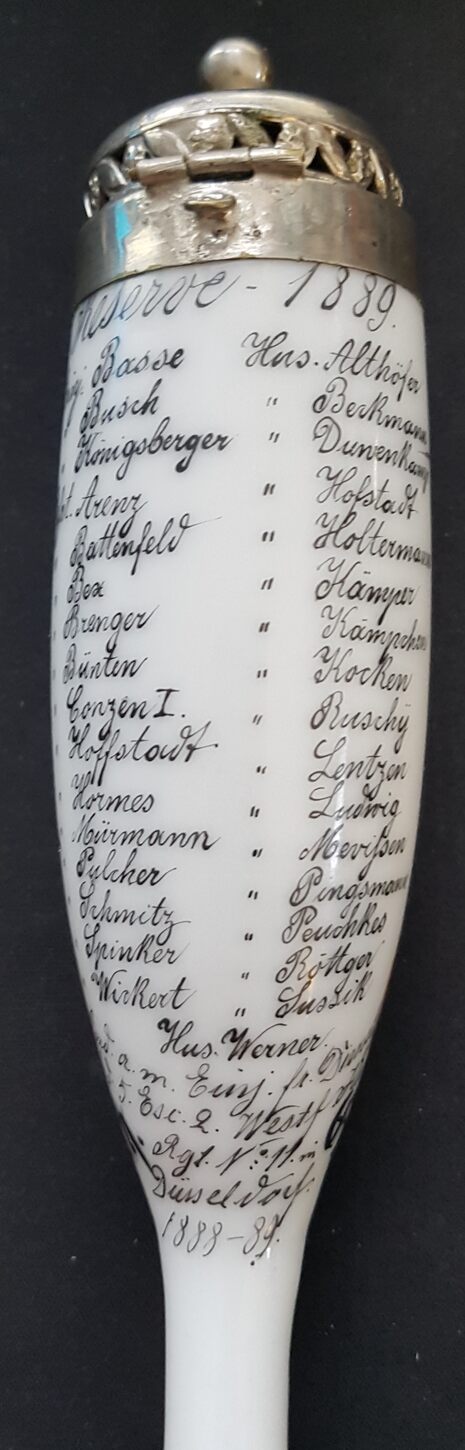 Reserve - 1889.
Basse Hus. Althöfer
Busch " Berkmann
Königsberger " Duvenkamp
Arenz " Hofstadt
Battenfeld " Holtermann
Bex " Kämper
Brenger " Kämpchen
Bünten " Kocken
Conzen I. " Ruschÿ
Hoffstadt " Lentzen
Hormes " Ludwig
Mürmann " Mevißen
Pulcher " Pingsmann
Schmitz " Peuchkes
Spinker " Röttger
Wickert " Sussik
Hus. Werner.
a. m. Einj. fr.
5. Esc. 2. Westf.
Rgt. No. 11. in
Düsseldorf.
1888-89.